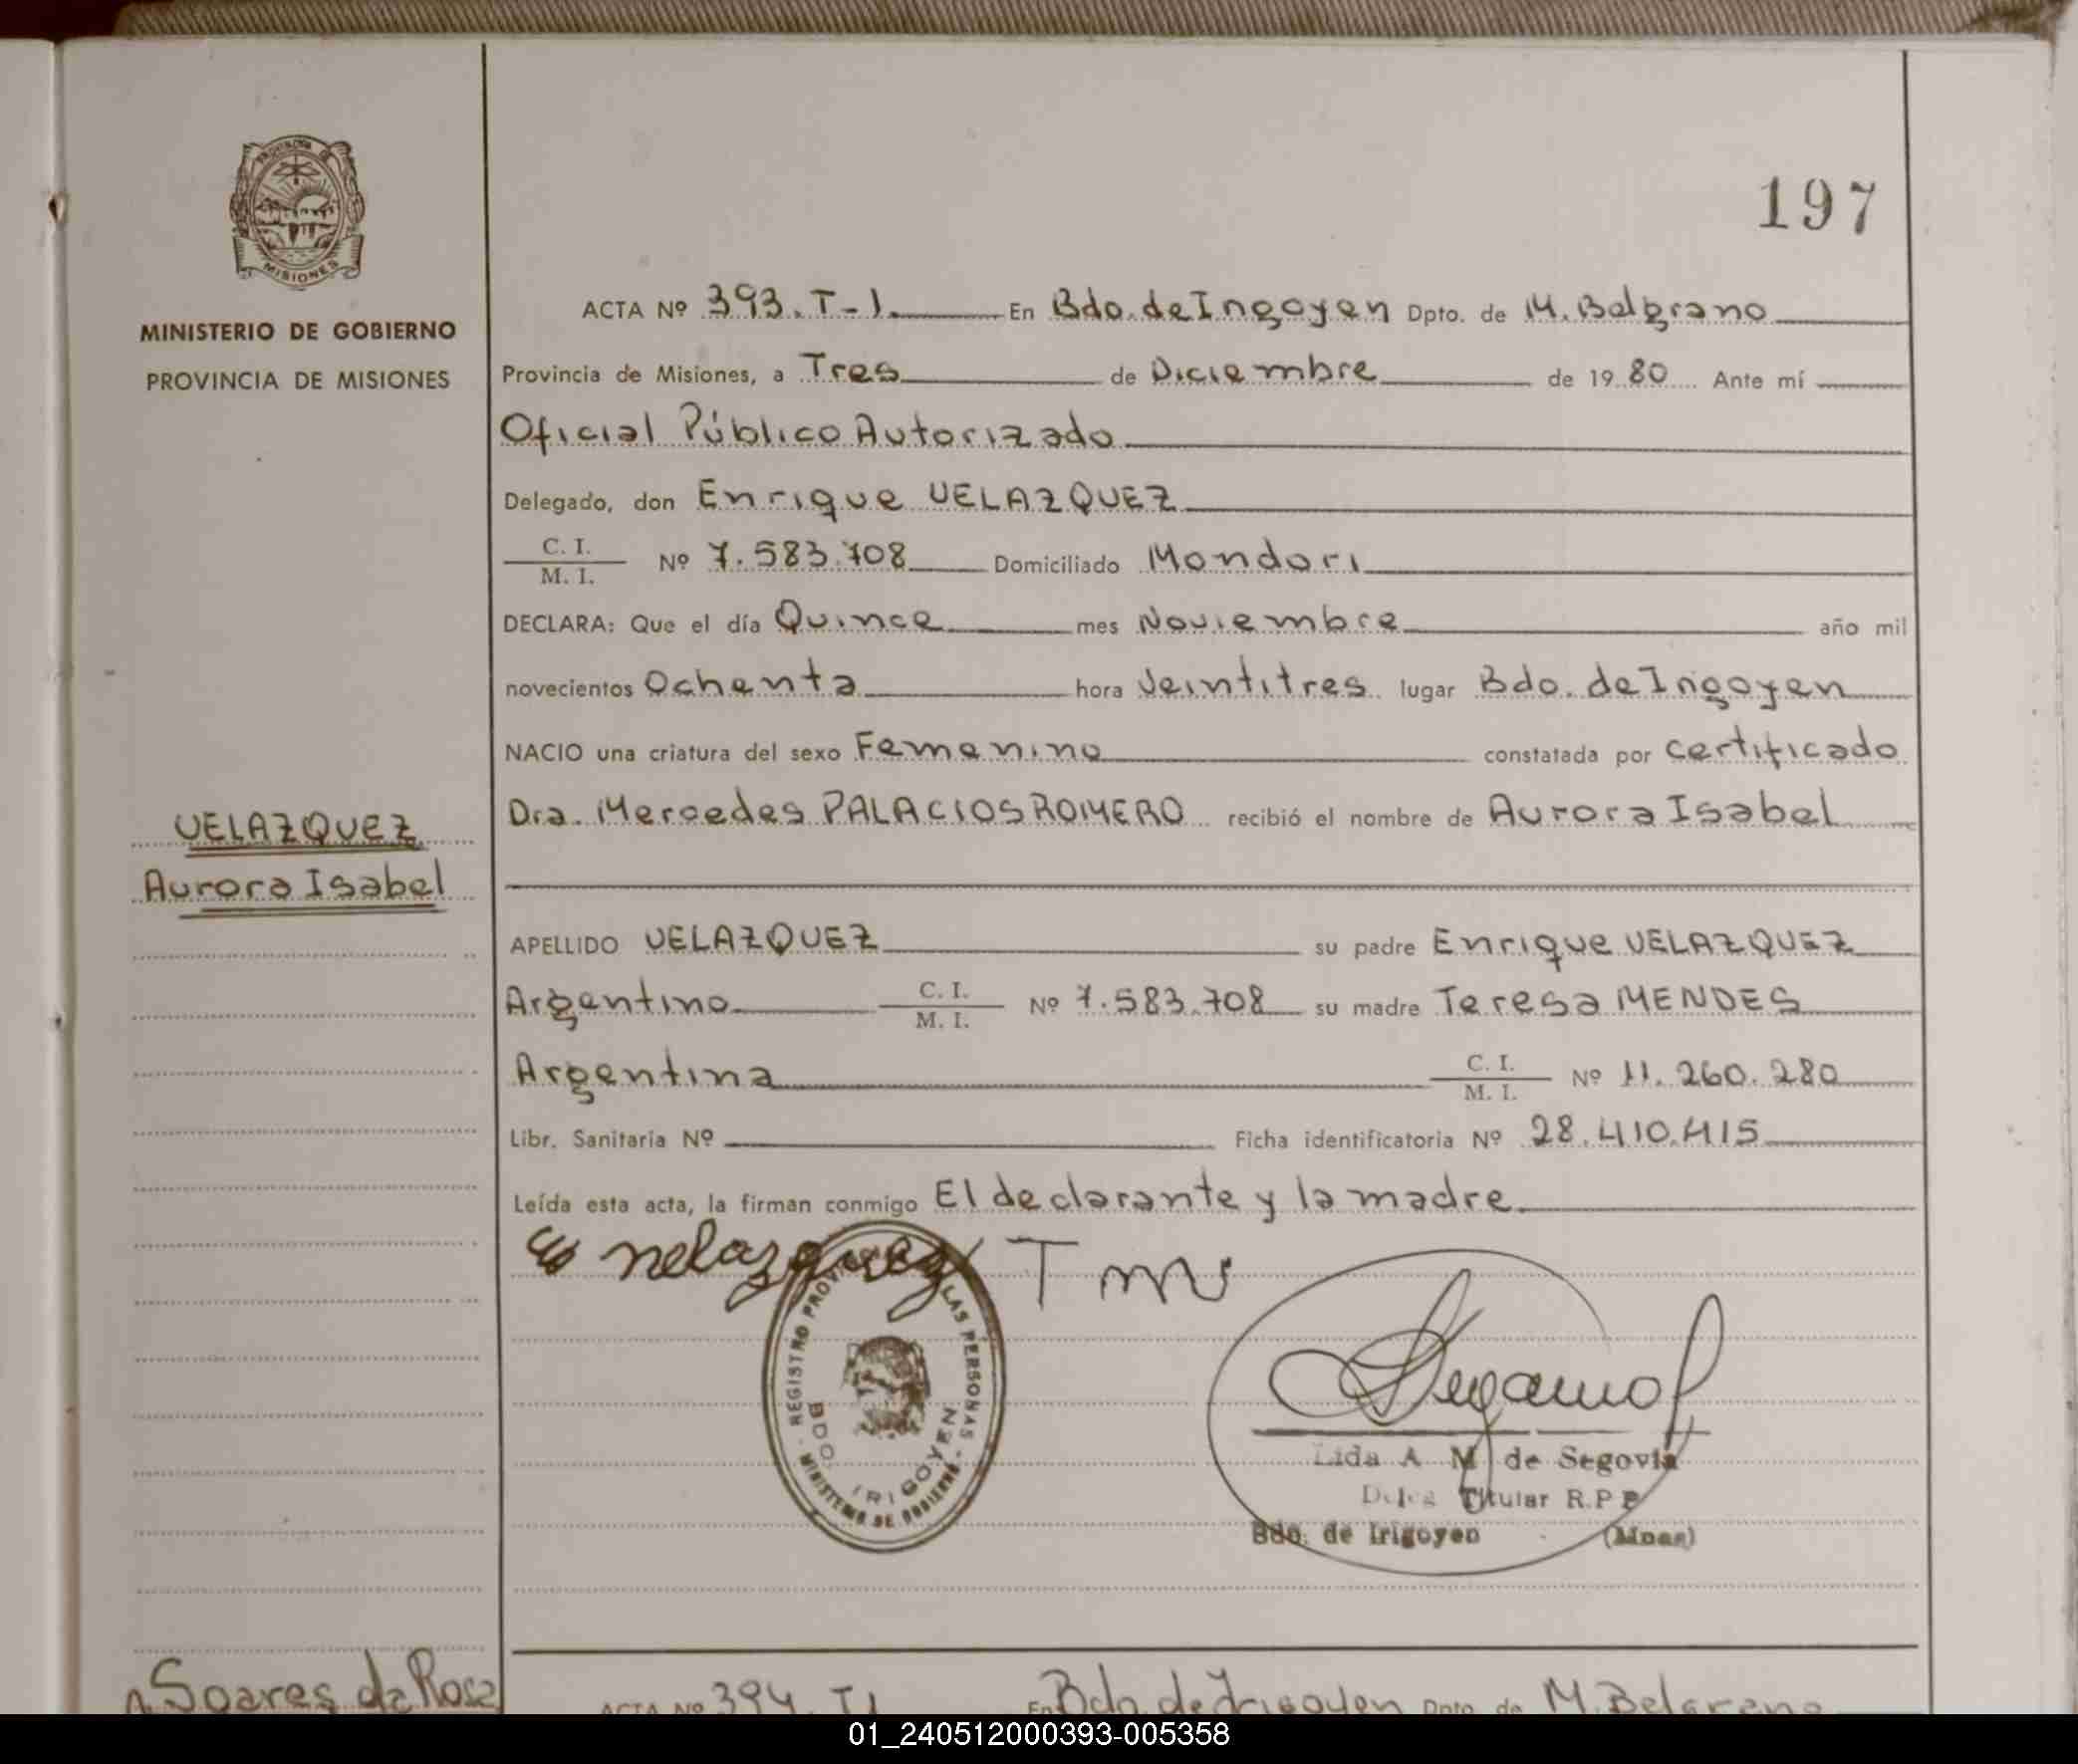 PROVINCIA DE
MISIONES
MINISTERIO DE GOBIERNO
PROVINCIA DE MISIONES
197
ACTA Nº 393. T-1. En Bdo. de Irigoyen Dpto. de M. Belgrano
Provincia de Misiones, a Tres de Diciembre de 1980 Ante mí
Oficial Público Autorizado
Delegado, don Enrique VELAZQUEZ
C. I.
M. I. Nº 7.583.708 Domiciliado Mondori
DECLARA: Que el día Quince mes Noviembre año mil
novecientos Ochenta hora Veintitres lugar Bdo. de Irigoyen
NACIO una criatura del sexo Femenino constatada por certificado
VELAZQUEZ
Aurora Isabel
Dra. Mercedes PALACIOS ROMERO recibió el nombre de Aurora Isabel
APELLIDO VELAZQUEZ su padre Enrique VELAZQUEZ
Argentino C. I.
M. I. Nº 7.583.708 su madre Teresa MENDES
Argentina C. I.
M. I. Nº 11.260.280
Libr. Sanitaria Nº Ficha identificatoria Nº 28.410.415
Leída esta acta, la firman conmigo El declarante y la madre.
E Velazquez T M
REGISTRO LAS PERSONAS
BDO. IRIGOYEN
MINISTERIO DE GOBIERNO
Lida A M de Segovia
Deleg Titular R.P.P
Bdo. de Irigoyen (Mnes)
Soares da Rosa
ACTA Nº 394 T1 En Bdo. de Irigoyen Dpto. de M. Belgrano
01_240512000393-005358